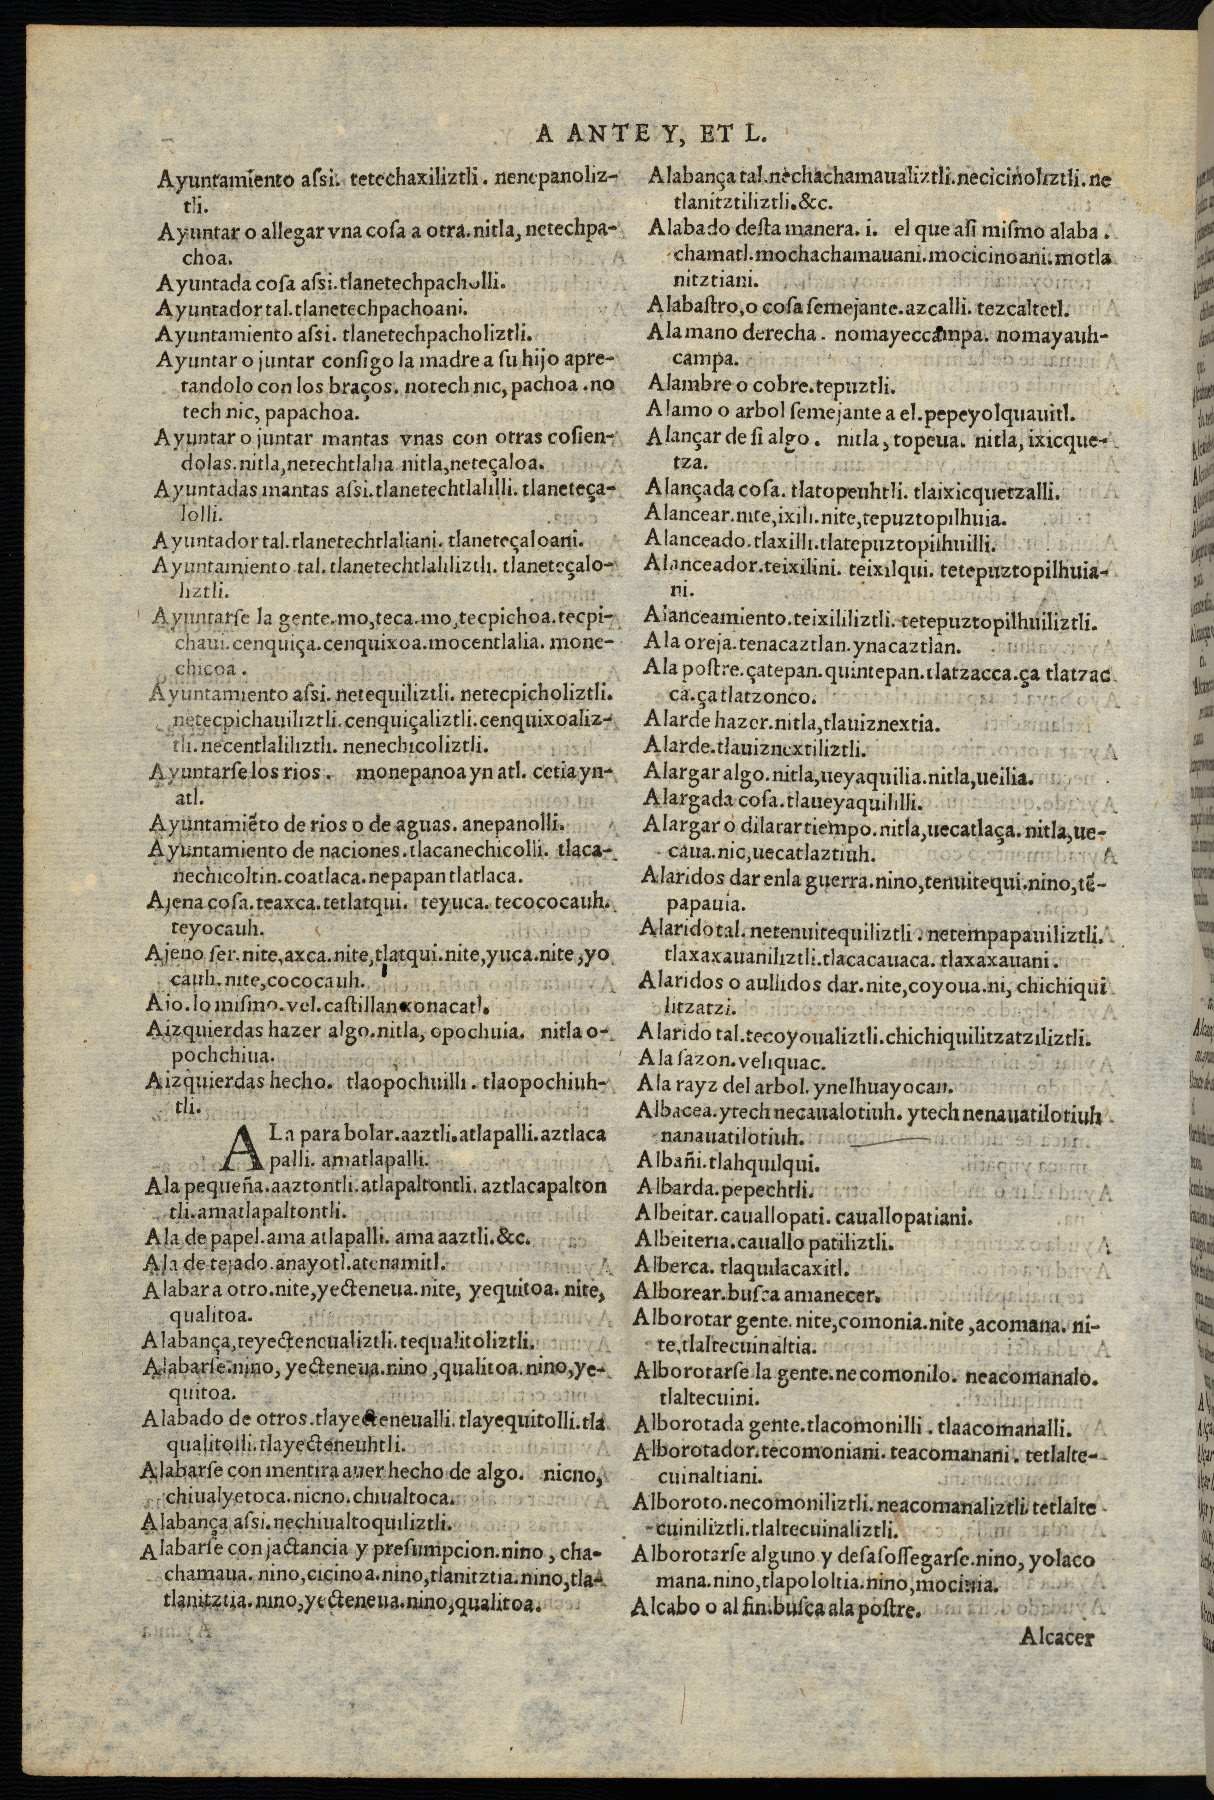 A ANTE Y, ET L.
Ayuntamiento aſsi. tetechaxiliztli. nenepanoliz-
tli.
Ayuntar o allegar vna coſa a otra. nitla, netechpa-
choa.
Ayuntada coſa aſsi. tlanetechpacholli.
Ayuntador tal. tlanetechpachoani.
Ayuntamiento aſsi. tlanetechpacholiztli.
Ayuntar o juntar conſigo la madre a ſu hijo apre-
tandolo con los braços. notech nic, pachoa. no
tech nic, papachoa.
Ayuntar o juntar mantas vnas con otras coſien-
dolas. nitla, netechtlalia nitla, neteçaloa.
Ayuntadas mantas aſsi. tlanetechtlalilli. tlaneteça-
lolli.
Ayuntador tal. tlanetechtlaliani. tlaneteçaloani.
Ayuntamiento tal. tlanetechtlaliliztli. tlaneteçalo-
liztli.
Ayuntarſe la gente. mo, teca. mo, tecpichoa. tecpi-
chaui. cenquiça. cenquixoa. mocentlalia. mone-
chicoa.
Ayuntamiento aſsi. netequiliztli. netecpicholiztli.
netecpichauiliztli. cenquiçaliztli. cenquixoaliz-
tli. necentlaliliztli. nenechicoliztli.
Ayuntarſe los rios. monepanoa yn atl. cetia yn-
atl.
Ayuntamiẽto de rios o de aguas. anepanolli.
Ayuntamiento de naciones. tlacanechicolli. tlaca-
nechicoltin. coatlaca. nepapan tlatlaca.
Ajena coſa. teaxca. tetlatqui. teyuca. tecococauh.
teyocauh.
Ajeno ſer. nite, axca. nite, tlatqui. nite, yuca. nite, yo
cauh. nite, cococauh.
Aio. lo miſmo. vel. caſtillan xonacatl.
Aizquierdas hazer algo. nitla, opochuia. nitla o-
pochchiua.
Aizquierdas hecho. tlaopochuilli. tlaopochiuh-
tli.
ALa para bolar. aaztli. atlapalli. aztlaca
palli. amatlapalli.
Ala pequeña. aaztontli. atlapaltontli. aztlacapalton
tli. amatlapaltontli.
Ala de papel. ama atlapalli. ama aaztli. &c.
Ala de tejado. anayotl. atenamitl.
Alabar a otro. nite, yecteneua. nite, yequitoa. nite,
qualitoa.
Alabança, teyecteneualiztli. tequalitoliztli.
Alabarſe. nino, yecteneua. nino, qualitoa. nino, ye-
quitoa.
Alabado de otros. tlayecteneualli. tlayequitolli. tla
qualitolli. tlayecteneuhtli.
Alabarſe con mentira auer hecho de algo. nicno,
chiualyetoca. nicno. chiualtoca.
Alabança aſsi. nechiualtoquiliztli.
Alabarſe con jactancia y preſumpcion. nino, cha-
chamaua. nino, cicinoa. nino, tlanitztia. nino, tla-
tlanitztia. nino, yecteneua. nino, qualitoa.
Alabança tal. nechachamaualiztli. necicinoliztli. ne
tlanitztiliztli. &c.
Alabado deſta manera. i. el que aſi miſmo alaba.
chamatl. mochachamauani. mocicinoani. motla
nitztiani.
Alabaſtro, o coſa ſemejante. azcalli. tezcaltetl.
Ala mano derecha. nomayeccampa. nomayauh-
campa.
Alambre o cobre. tepuztli.
Alamo o arbol ſemejante a el. pepeyolquauitl.
Alançar de ſi algo. nitla, topeua. nitla, ixicque-
tza.
Alançada coſa. tlatopeuhtli. tlaixicquetzalli.
Alancear. nite, ixili. nite, tepuztopilhuia.
Alanceado. tlaxilli. tlatepuztopilhuilli.
Alanceador. teixilini. teixilqui. tetepuztopilhuia-
ni.
Alanceamiento. teixililiztli. tetepuztopilhuiliztli.
Ala oreja. tenacaztlan. ynacaztlan.
Ala poſtre. çatepan. quintepan. tlatzacca. ça tlatzac
ca. ça tlatzonco.
Alarde hazer. nitla, tlauiznextia.
Alarde. tlauiznextiliztli.
Alargar algo. nitla, ueyaquilia. nitla, ueilia.
Alargada coſa. tlaueyaquililli.
Alargar o dilatar tiempo. nitla, uecatlaça. nitla, ue-
caua. nic, uecatlaztiuh.
Alaridos dar enla guerra. nino, tenuitequi. nino, tẽ-
papauia.
Alarido tal. netenuitequiliztli. netempapauiliztli.
tlaxaxauaniliztli. tlacacauaca. tlaxaxauani.
Alaridos o aullidos dar. nite, coyoua. ni, chichiqui
litzatzi.
Alarido tal. tecoyoualiztli. chichiquilitzatziliztli.
Ala ſazon. veliquac.
Ala rayz del arbol. ynelhuayocan.
Albacea. ytech necaualotiuh. ytech nenauatilotiuh
nanauatilotiuh.
Albañi. tlahquilqui.
Albarda. pepechtli.
Albeitar. cauallopati. cauallopatiani.
Albeiteria. cauallo patiliztli.
Alberca. tlaquilacaxitl.
Alborear. buſca amanecer.
Alborotar gente. nite, comonia. nite, acomana. ni-
te, tlaltecuinaltia.
Alborotarſe la gente. necomonilo. neacomanalo.
tlaltecuini.
Alborotada gente. tlacomonilli. tlaacomanalli.
Alborotador. tecomoniani. teacomanani. tetlalte-
cuinaltiani.
Alboroto. necomoniliztli. neacomanaliztli. tetlalte
cuiniliztli. tlaltecuinaliztli.
Alborotarſe alguno y deſaſoſſegarſe. nino, yolaco
mana. nino, tlapololtia. nino, mocihuia.
Alcabo o al fin. buſca ala poſtre.
Alcacer